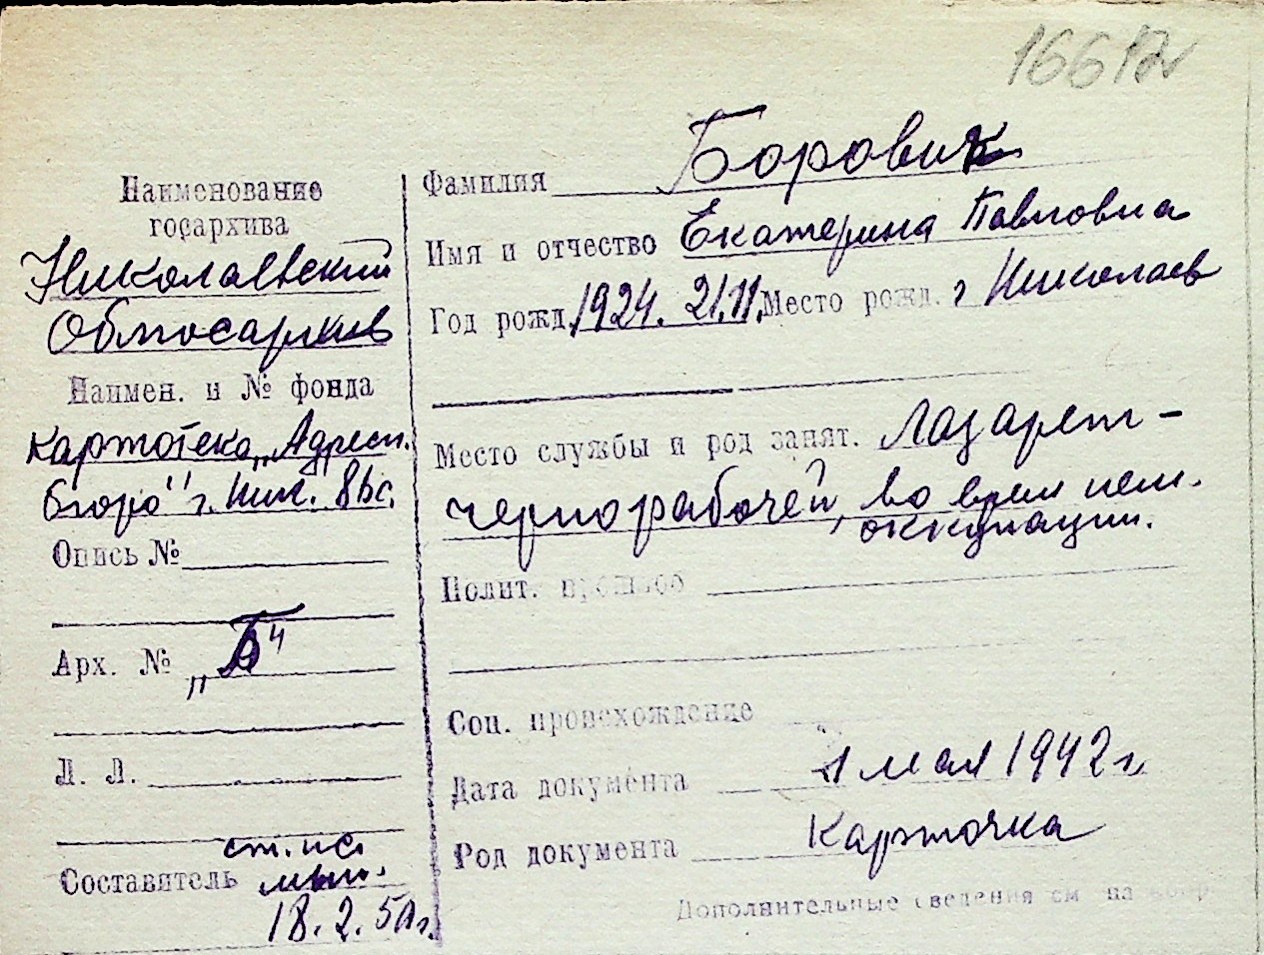 Наименование
госархива
Николаевский
Облгосархив
Наимен. и № фонда
картотека „Адресн.
бюро" г. Ник.
Опись №
Арх. № „Б"
Л. Л.
Составитель
18. 2. 50 г.
Фамилия Боровик
Имя и отчество Екатерина Павловна
Год рожд. 1924. 21.11. Место рожд. г Николаев
Место службы и род занят. Лазарет -
чернорабочей, во врем нем.
оккупации.
Полит. прошлое
Соц. происхождение
Дата документа 1 мая 1942 г.
Род документа Карточка
Дополнительные сведения см на обор